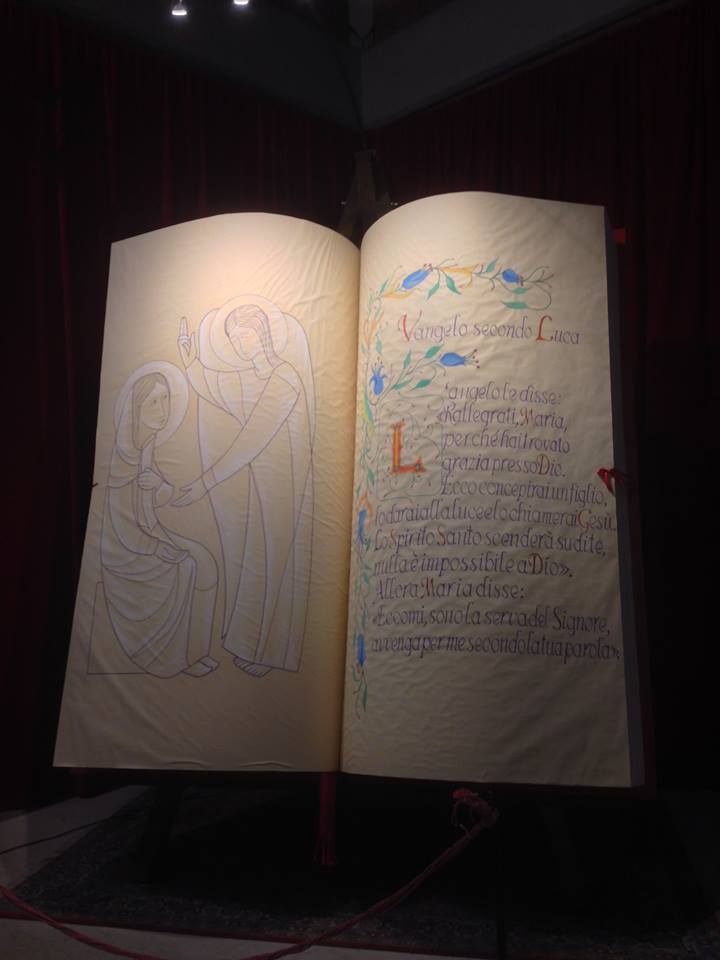 Vangelo secondo Luca
L'angelo le disse:
«Rallegrati, Maria,
perché hai trovato
grazia presso Dio.
Ecco concepirai un figlio,
lo darai alla luce e lo chiamerai Gesù.
Lo Spirito Santo scenderà su di te,
nulla è impossibile a Dio».
Allora Maria disse:
«Eccomi, sono la serva del Signore,
avvenga per me secondo la tua parola».